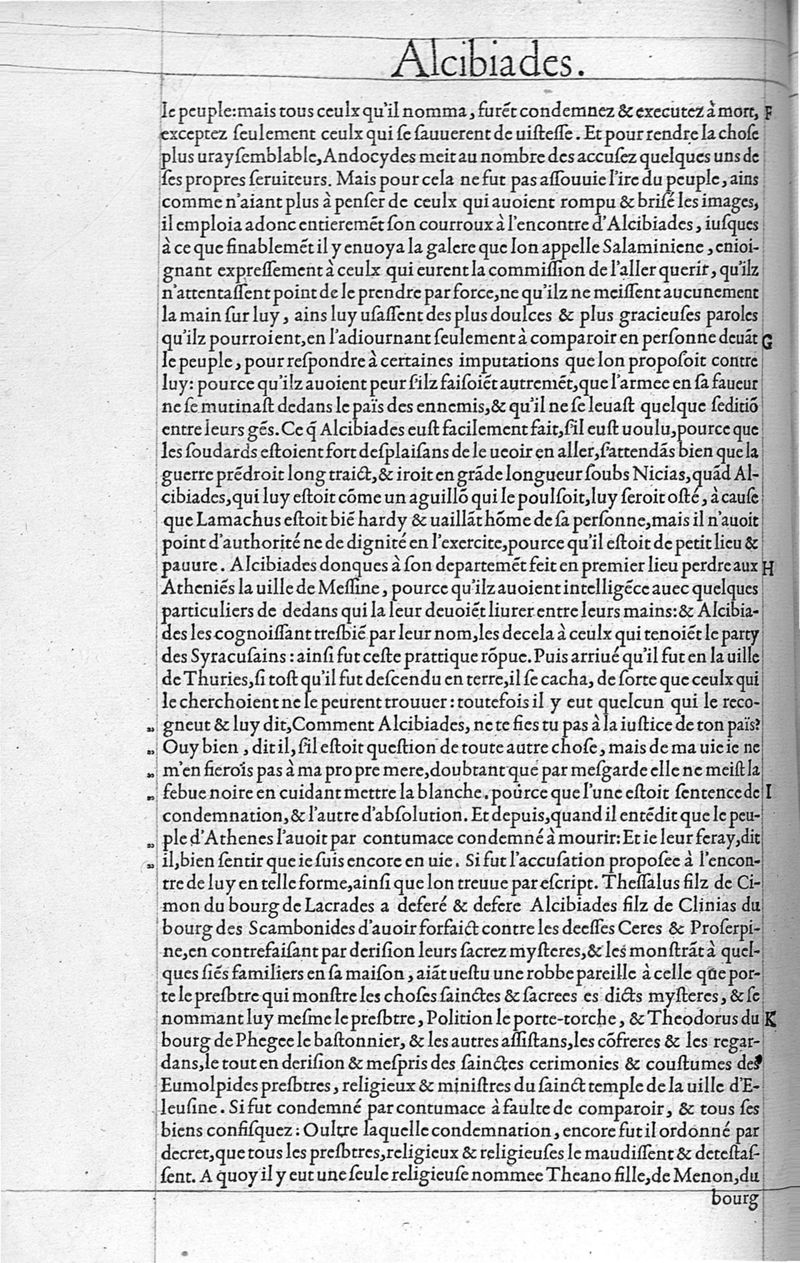 Alcibiades.
le peuple:mais tous ceulx qu'il nomma, furẽt condemnez & executez à mort, F
exceptez ſeulement ceulx qui ſe ſauuerent de uiſteſſe. Et pour rendre la choſe
plus urayſemblable, Andocydes meit au nombre des accuſez quelques uns de
ſes propres ſeruiteurs. Mais pour cela ne fut pas aſſouuie l'ire du peuple, ains
comme n'aiant plus à penſer de ceulx qui auoient rompu & briſé les images,
il emploia adonc entieremẽt ſon courroux à l'encontre d'Alcibiades, iuſques
à ce que finablemẽt il y enuoya la galere que lon appelle Salaminiene, enioi-
gnant expreſſement à ceulx qui eurent la commiſſion de l'aller querir, qu'ilz
n'attentaſſent point de le prendre par force, ne qu'ilz ne meiſſent aucunement
la main ſur luy, ains luy uſaſſent des plus doulces & plus gracieuſes paroles
qu'ilz pourroient, en l'adiournant ſeulement à comparoir en perſonne deuãt G
le peuple, pour reſpondre à certaines imputations que lon propoſoit contre
luy: pource qu'ilz auoient peur ſ'ilz faiſoiẽt autremẽt, que l'armee en ſa faueur
ne ſe mutinaſt dedans le païs des ennemis, & qu'il ne ſe leuaſt quelque ſeditiõ
entre leurs gẽs. Ce q̃ Alcibiades euſt facilement fait, ſ'il euſt uoulu, pource que
les ſoudards eſtoient fort deſplaiſans de le ueoir en aller, ſ'attendãs bien que la
guerre prẽdroit long traict, & iroit en grãde longueur ſoubs Nicias, quãd Al-
cibiades, qui luy eſtoit cõme un aguillõ qui le poulſoit, luy ſeroit oſté, à cauſe
que Lamachus eſtoit biẽ hardy & uaillãt hõme de ſa perſonne, mais il n'auoit
point d'authorité ne de dignité en l'exercite, pource qu'il eſtoit de petit lieu &
pauure. Alcibiades donques à ſon departemẽt feit en premier lieu perdre aux H
Atheniẽs la uille de Meſſine, pource qu'ilz auoient intelligẽce auec quelques
particuliers de dedans qui la leur deuoiẽt liurer entre leurs mains: & Alcibia-
des les cognoiſſant treſbiẽ par leur nom, les decela à ceulx qui tenoiẽt le party
des Syracuſains: ainſi fut ceſte prattique rõpue. Puis arriué qu'il fut en la uille
de Thuries, ſi toſt qu'il fut deſcendu en terre, il ſe cacha, de ſorte que ceulx qui
le cherchoient ne le peurent trouuer: toutefois il y eut quelcun qui le reco-
„ gneut & luy dit, Comment Alcibiades, ne te fies tu pas à la iuſtice de ton païs?
„ Ouy bien, dit il, ſ'il eſtoit queſtion de toute autre choſe, mais de ma uie ie ne
„ m'en fierois pas à ma propre mere, doubtant que par meſgarde elle ne meiſt la
„ febue noire en cuidant mettre la blanche. pource que l'une eſtoit ſentence de I
condemnation, & l'autre d'abſolution. Et depuis, quand il entẽdit que le peu-
„ ple d'Athenes l'auoit par contumace condemné à mourir: Et ie leur feray, dit
„ il, bien ſentir que ie ſuis encore en uie. Si fut l'accuſation propoſee à l'encon-
tre de luy en telle forme, ainſi que lon treuue par eſcript. Theſſalus filz de Ci-
mon du bourg de Lacrades a deferé & defere Alcibiades filz de Clinias du
bourg des Scambonides d'auoir forfaict contre les deeſſes Ceres & Proſerpi-
ne, en contrefaiſant par deriſion leurs ſacrez myſteres, & les monſtrãt à quel-
ques ſiẽs familiers en ſa maiſon, aiãt ueſtu une robbe pareille à celle que por-
te le preſbtre qui monſtre les choſes ſainctes & ſacrees es dicts myſteres, & ſe
nommant luy meſme le preſbtre, Polition le porte-torche, & Theodorus du K
bourg de Phegee le baſtonnier, & les autres aſſiſtans, les cõfreres & les regar-
dans, le tout en deriſion & meſpris des ſainctes cerimonies & couſtumes des
Eumolpides preſbtres, religieux & miniſtres du ſainct temple de la uille d'E-
leuſine. Si fut condemné par contumace à faulte de comparoir, & tous ſes
biens confiſquez: Oultre laquelle condemnation, encore fut il ordonné par
decret, que tous les preſbtres, religieux & religieuſes le maudiſſent & deteſtaſ-
ſent. A quoy il y eut une ſeule religieuſe nommee Theano fille, de Menon, du
bourg